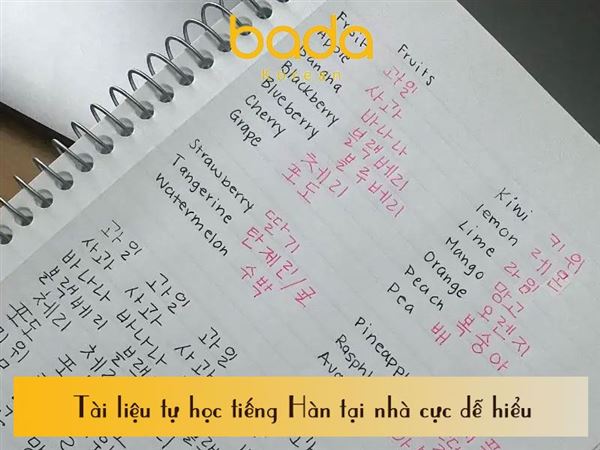 bada
Korean
Fruits
Fruit 과일
Apple 사과
Banana 바나나
Blackberry 블랙베리
Blueberry 블루베리
Cherry 체리
Grape 포도
Strawberry 딸기
Tangerine 탄제린/
Watermelon 수박
Kiwi 키위
lemon 레몬
Lime 라임
Mango 망고
Orange 오렌지
Peach 복숭아
Pea 배
Pineappl
과일 과일 과일
사과 사과 사과
바나나 바나나
블랙베리
체리 체리
포도
Tài liệu tự học tiếng Hàn tại nhà cực dễ hiểu